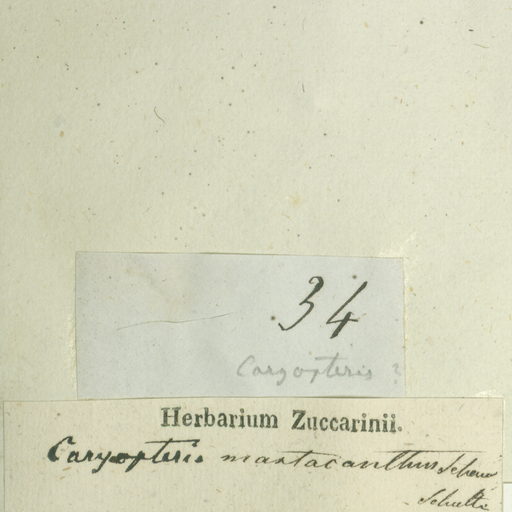 34
Caryopteris ?
Herbarium Zuccarinii.
Caryopteris mastacanthus Schau
Schult